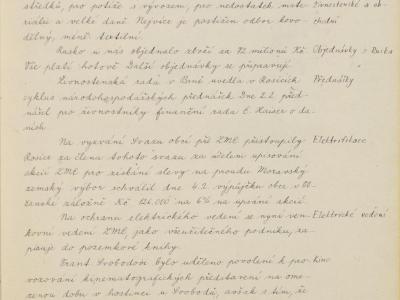 středků, pro potíže s vývozem, pro nedostatek mate- Živnostenské a ob-
riálu a velké daně Nejvíce je postižen odbor kovo- chodní
dělný, méně textilní.
Rusko u nás objednalo zboží za 72 milionů Kč Objednávky z Ruska
Vše platí hotově Další objednávky se připravují
Živnostenská rada v Brně uvedla v Rosicích Přednášky
cyklus národohospodářských přednášek Dne 2.2. před-
nášel pro živnostníky finanční rada C. Kaiser o da-
ních
Na vyzvání Svazu obcí při ZME přistoupily Elektrifikace
Rosice za člena tohoto svazu za účelem upisování
akcií ZME pro získání slevy na proudu Moravský
zemský výbor schválil dne 4.2. výpůjčku obce u Ob-
čanské záložně Kč 126.000 na 6% na upsání akcií.
Na ochranu elektrického vedení se nyní ven- Elektrické vedení
kovní vedení ZME, jako všeužitečného podniku, za-
pisuje do pozemkové knihy.
Frant. Svobodovi bylo uděleno povolení k pro- Kino
vozování kinematografických představení na ome-
zenou dobu v hostinci u Svobodů, avšak s tím, že